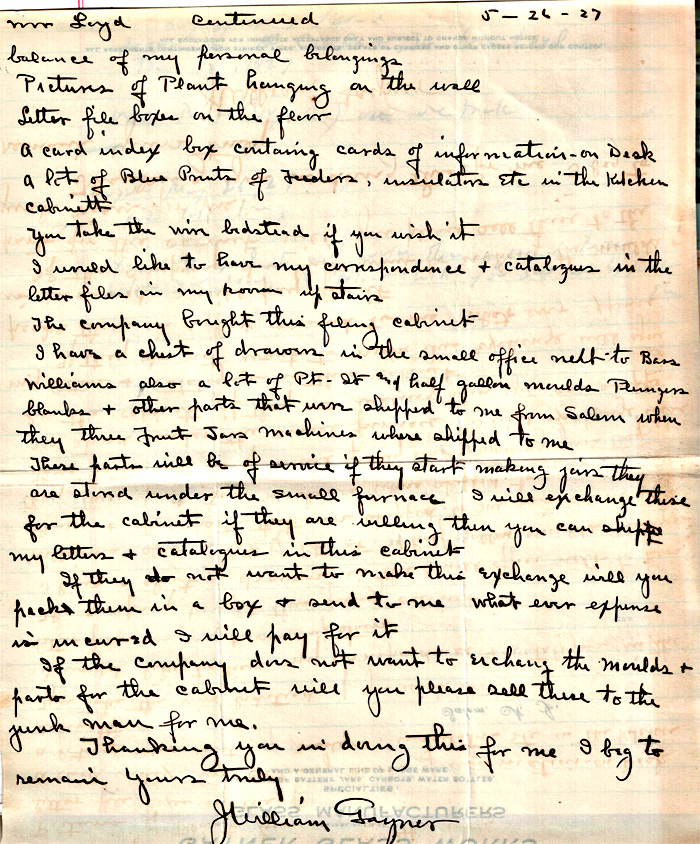 Mr Loyd continued 5-26-27
balance of my personal belongings
Pictures of Plant hanging on the wall
Letter file boxes on the floor
A card index box containg cards of information-on Desk
A lot of Blue Prints of Feeders, insulators Etc in the Kitchen
cabinett
You take the wire bedstead if you wish it
I would like to have my correspondence + catalogues in the
letter files in my room up stairs
The company bought this filing cabinet
I have a chest of drawers in the small office next to Bass
Williams also a lot of Pt-Qt and half gallon moulds Plungers
blanks + other parts that were shipped to me from Salem when
they three Fruit Jars machines where shipped to me
These parts will be of service if they start making jars they
are stored under the small furnace I will exchange these
for the cabinet if they are willing then you can ship
my letters + catalogues in this cabinet
If they do not want to make this exchange will you
pack them in a box + send to me what ever expense
is incurred I will pay for it
If the company does not want to exchang the moulds +
parts for the cabinet will you please sell these to the
junk man for me.
Thanking you in doing this for me I beg to
remain Yours truly
J William Gayner
SPECIALTIES
GLASS MANUFACTURERS
GAYNER GLASS WORKS